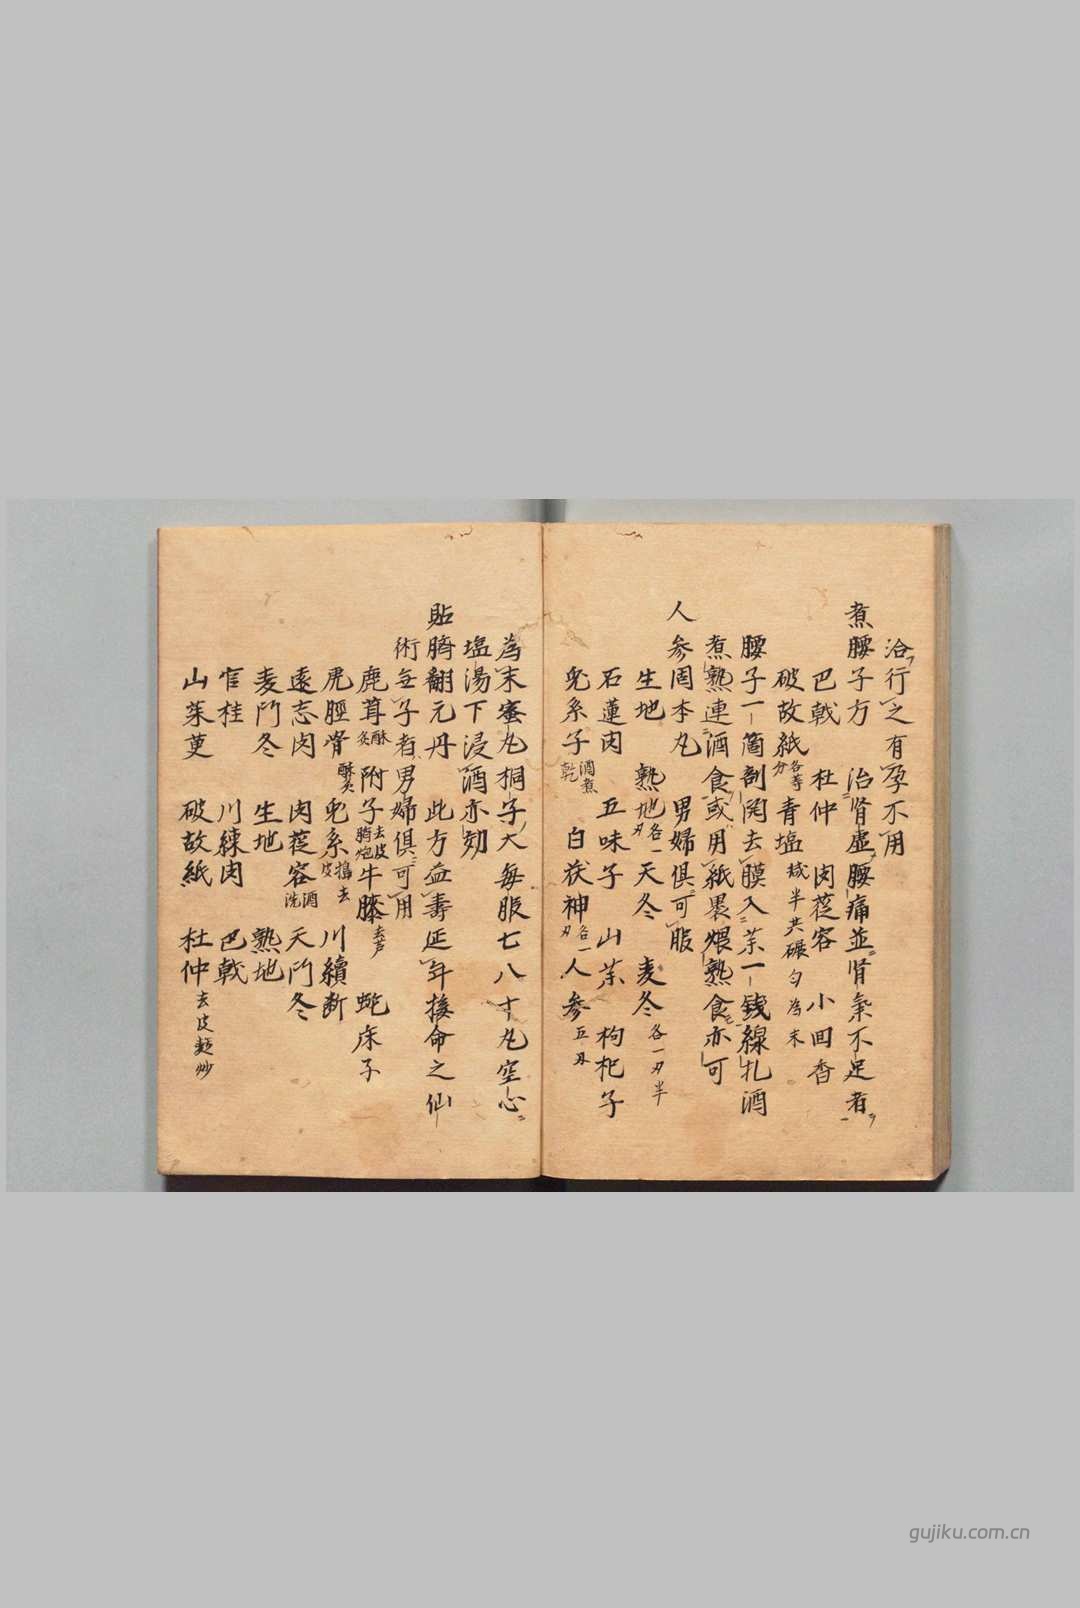 治行之有孕不用
煮腰子方 治肾虚腰痛並肾氣不足者
巴戟 杜仲 肉苁容 小回香
破故紙各等分 青塩 半共碾匀為末
腰子一箇剖開去膜入茱一錢線扎酒
煮熟連酒食或用紙裹煨熟食亦可
人参固本丸 男婦俱可服
生地 熟地各一刃 天冬 麦冬各一刃半
石蓮肉 五味子 山茱 枸杞子
兎糸子酒煮乾 白茯神各一刃 人参五刃
為末蜜丸桐子大每服七八十丸空心
塩湯下浸酒亦効
貼臍翻元丹 此方益壽延年接命之仙
術無子者男婦俱可用
鹿茸酥炙 附子去皮臍炮 牛膝去芦 蛇床子
虎脛骨酥炙 兎糸搗去皮 川續断
遠志肉 肉苁容酒洗 天门冬
麦门冬 生地 熟地
官桂 川練肉 巴戟
山茱萸 破故紙 杜仲去皮麺炒
gujiku.com.cn